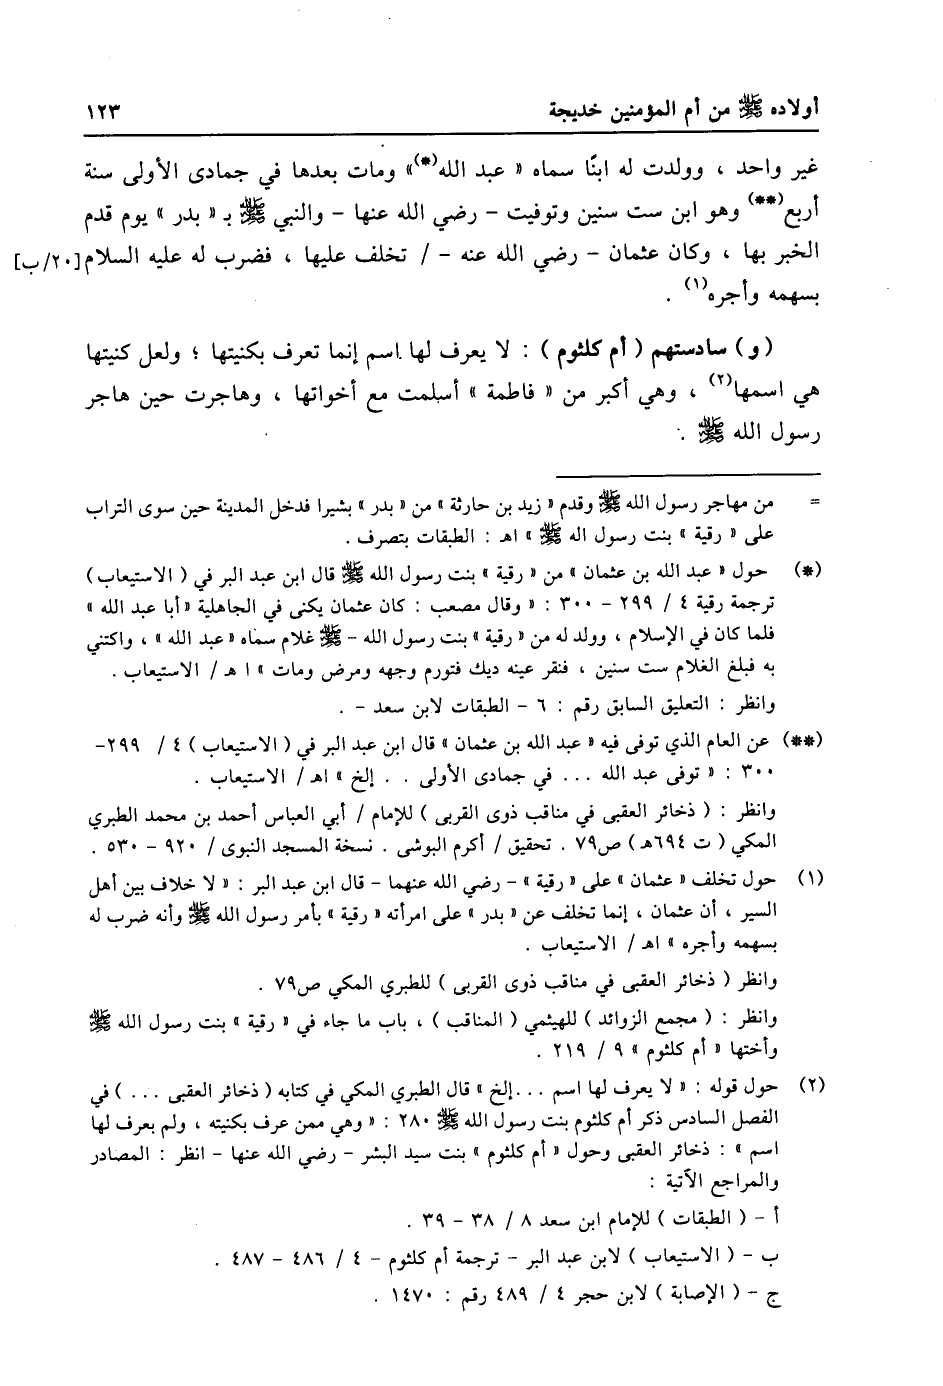 أولاده ﷺ من أم المؤمنين خديجة ١٢٣
غير واحد ، وولدت له ابنًا سماه « عبد الله(*)» ومات بعدها في جمادى الأولى سنة
أربع(**) وهو ابن ست سنين وتوفيت - رضي الله عنها - والنبي ﷺ بـ « بدر » يوم قدم
الخبر بها ، وكان عثمان - رضي الله عنه - / تخلف عليها ، فضرب له عليه السلام [٢٠/ب]
بسهمه وأجره(١) .
(و) سادستهم ( أم كلثوم ) : لا يعرف لها اسم إنما تعرف بكنيتها ؛ ولعل كنيتها
هي اسمها(٢) ، وهي أكبر من « فاطمة » أسلمت مع أخواتها ، وهاجرت حين هاجر
رسول الله ﷺ .
= من مهاجر رسول الله ﷺ وقدم « زيد بن حارثة » من « بدر » بشيرا فدخل المدينة حين سوى التراب
على « رقية » بنت رسول اله ﷺ » اهـ : الطبقات بتصرف .
(*) حول « عبد الله بن عثمان » من « رقية » بنت رسول الله ﷺ قال ابن عبد البر في ( الاستيعاب )
ترجمة رقية ٤ / ٢٩٩ - ٣٠٠ : « وقال مصعب : كان عثمان يكنى في الجاهلية «أبا عبد الله »
فلما كان في الإسلام ، وولد له من « رقية » بنت رسول الله - ﷺ غلام سماه « عبد الله » ، واكتني
به فبلغ الغلام ست سنين ، فنقر عينه ديك فتورم وجهه ومرض ومات » ا هـ / الاستيعاب .
وانظر : التعليق السابق رقم : ٦ - الطبقات لابن سعد - .
(**) عن العام الذي توفى فيه « عبد الله بن عثمان » قال ابن عبد البر في ( الاستيعاب ) ٤ / ٢٩٩-
٣٠٠ : « توفى عبد الله ... في جمادى الأولى . . إلخ » اهـ / الاستيعاب .
وانظر : ( ذخائر العقبى في مناقب ذوى القربى ) للإمام / أبي العباس أحمد بن محمد الطبري
المكي ( ت ٦٩٤هـ ) ص٧٩ . تحقيق / أكرم البوشى . نسخة المسجد النبوى / ٩٢٠ - ٥٣٠ .
(١) حول تخلف « عثمان » على « رقية » - رضي الله عنهما - قال ابن عبد البر : « لا خلاف بين أهل
السير ، أن عثمان ، إنما تخلف عن « بدر » على امرأته « رقية » بأمر رسول الله ﷺ وأنه ضرب له
بسهمه وأجره » اهـ / الاستيعاب .
وانظر ( ذخائر العقبى في مناقب ذوى القربى ) للطبري المكي ص٧٩ .
وانظر : ( مجمع الزوائد ) للهيثمي ( المناقب ) ، باب ما جاء في « رقية » بنت رسول الله ﷺ
وأختها « أم كلثوم » ٩ / ٢١٩ .
(٢) حول قوله : « لا يعرف لها اسم ...إلخ » قال الطبري المكي في كتابه ( ذخائر العقبى ... ) في
الفصل السادس ذكر أم كلثوم بنت رسول الله ﷺ ٢٨٠ : « وهي ممن عرف بكنيته ، ولم يعرف لها
اسم » : ذخائر العقبى وحول « أم كلثوم » بنت سيد البشر - رضي الله عنها - انظر : المصادر
والمراجع الآتية :
أ - ( الطبقات ) للإمام ابن سعد ٨ / ٣٨ - ٣٩ .
ب - ( الاستيعاب ) لابن عبد البر - ترجمة أم كلثوم - ٤ / ٤٨٦ - ٤٨٧ .
ج - ( الإصابة ) لابن حجر ٤ / ٤٨٩ رقم : ١٤٧٠ .